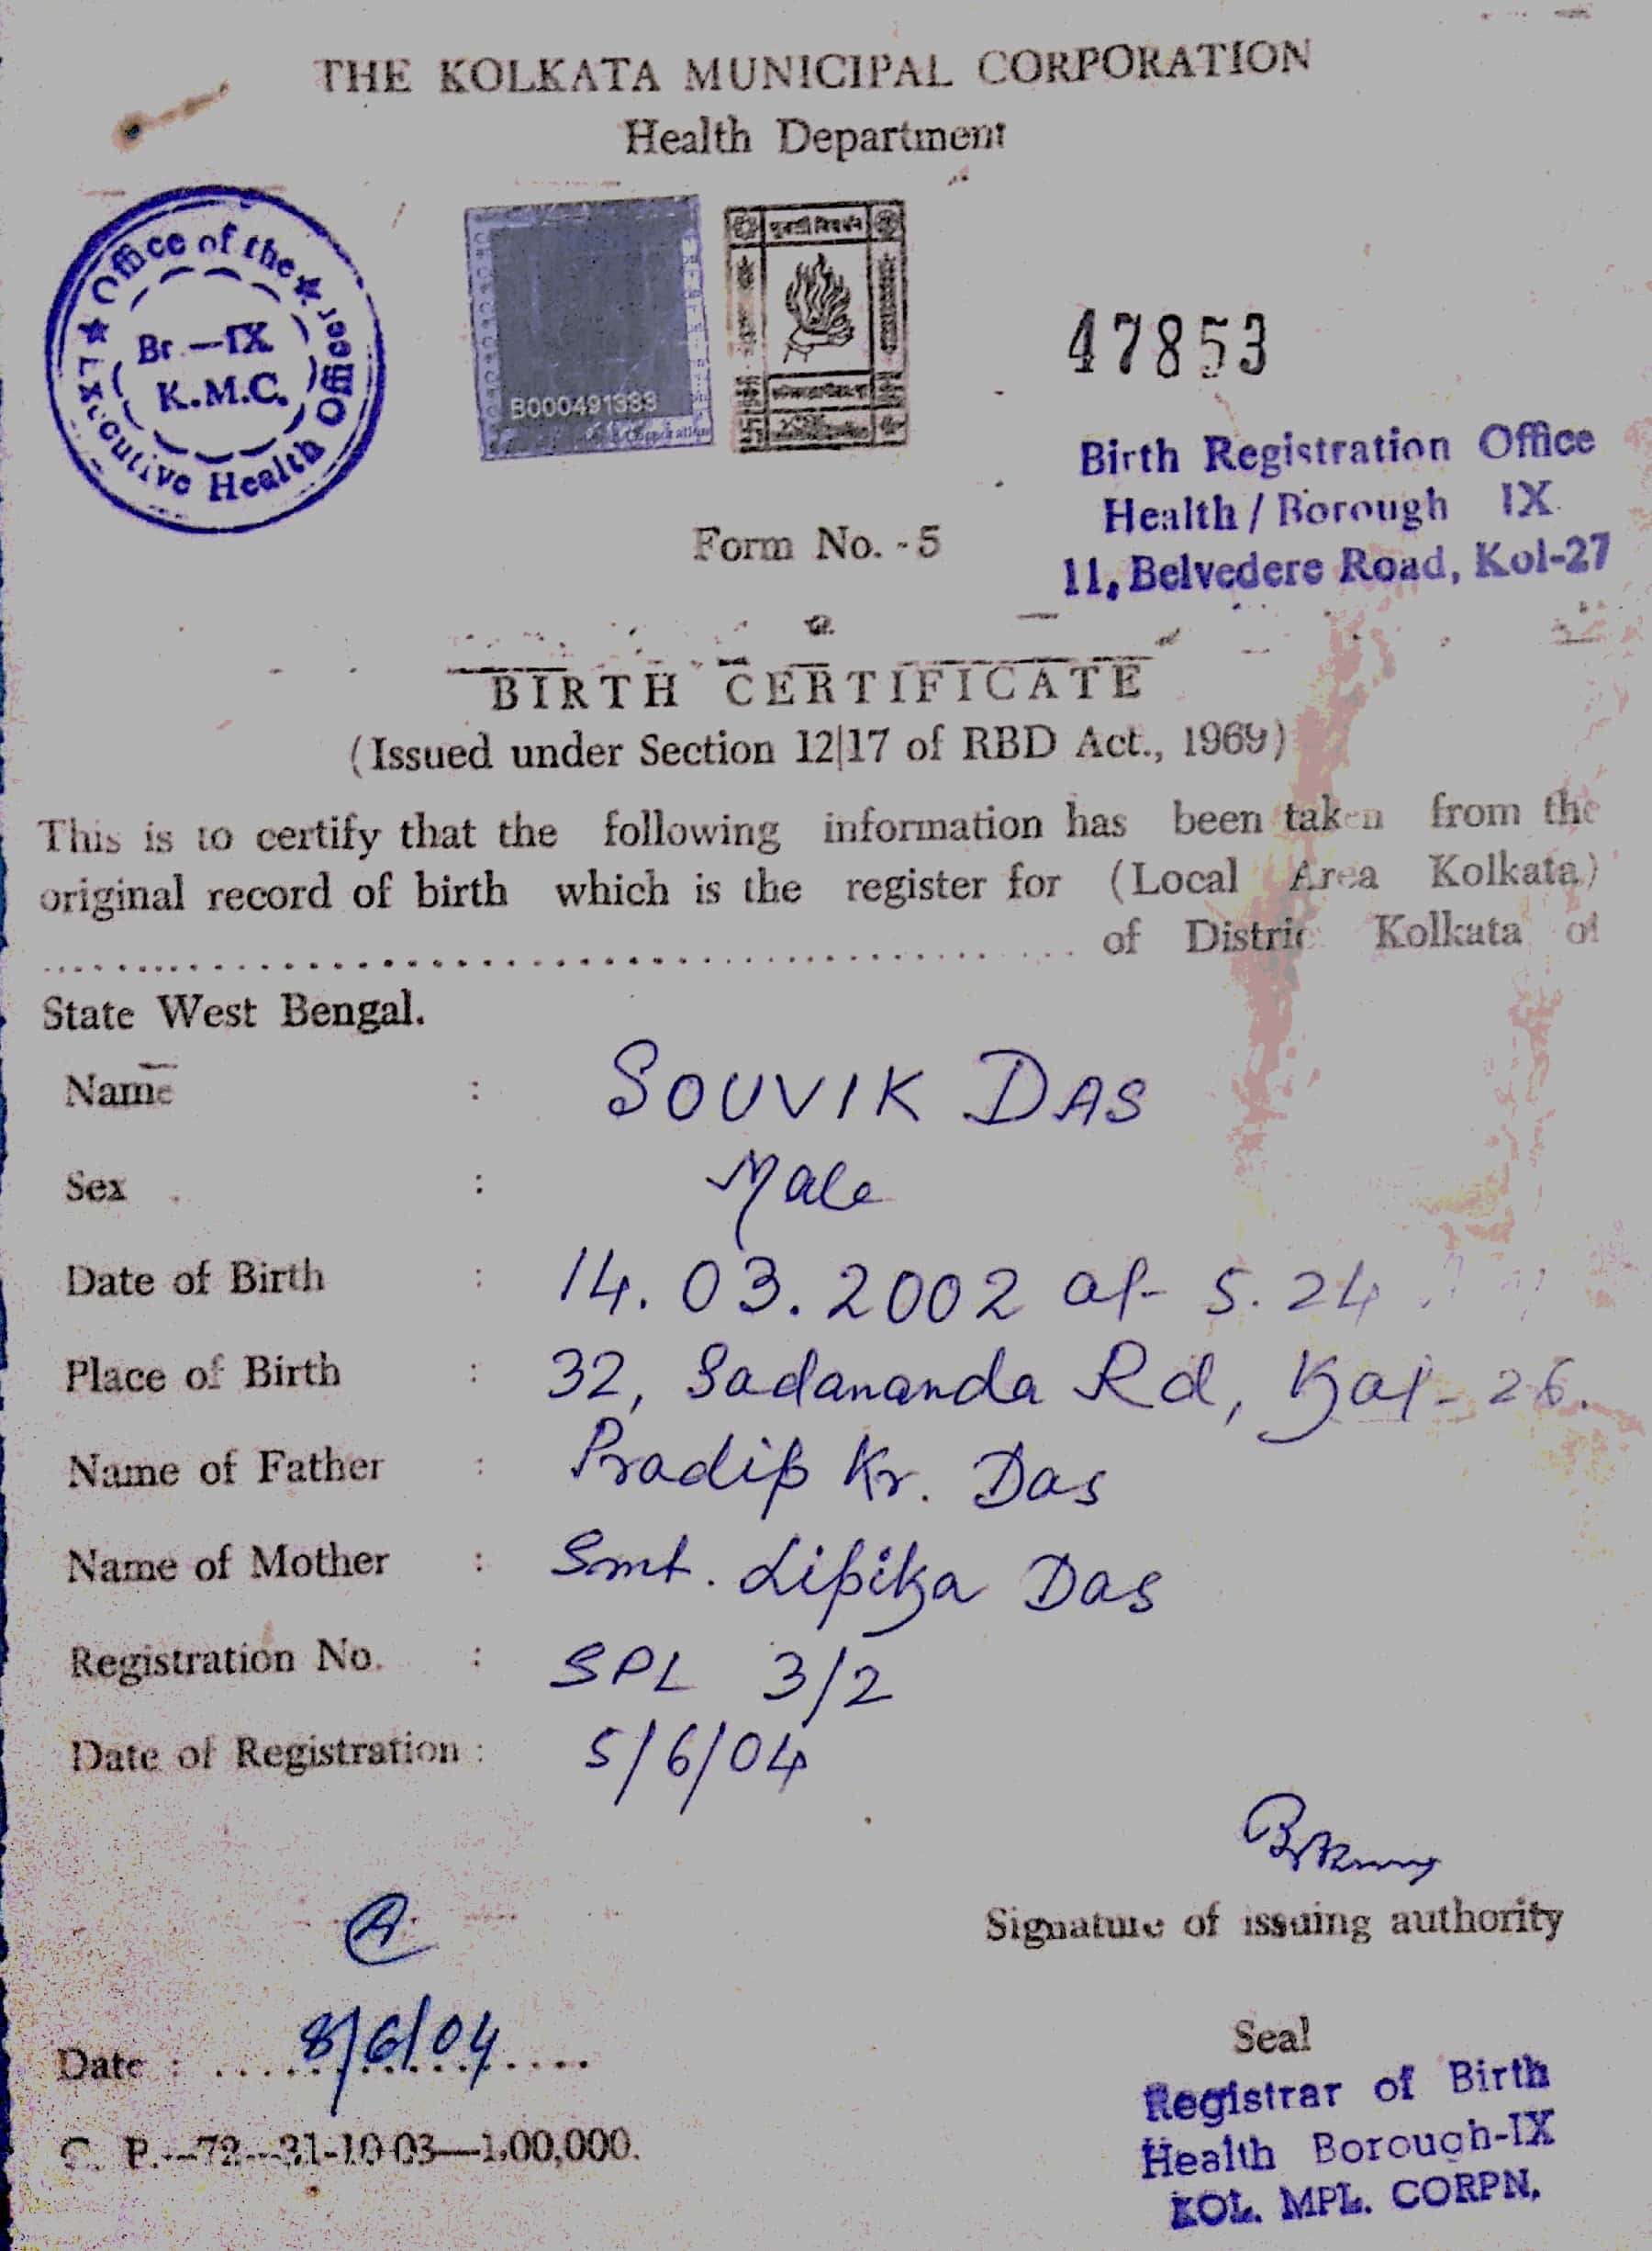 THE KOLKATA MUNICIPAL CORPORATION
Health Department
Office of the
Executive Health Officer
Br.—IX
K.M.C.
B000491383
47853
Birth Registration Office
Health / Borough IX
11, Belvedere Road, Kol-27
Form No. - 5
BIRTH CERTIFICATE
(Issued under Section 12|17 of RBD Act., 1969)
This is to certify that the following information has been taken from the
original record of birth which is the register for (Local Area Kolkata)
of District Kolkata of
State West Bengal.
Name : SOUVIK DAS
Sex : Male
Date of Birth : 14.03.2002 at 5.24
Place of Birth : 32, Sadananda Rd, Kal-26.
Name of Father : Pradip Kr. Das
Name of Mother : Smt. Lipika Das
Registration No. : SPL 3/2
Date of Registration : 5/6/04
Signature of issuing authority
Date : 8/6/04
Seal
Registrar of Birth
Health Borough-IX
KOL. MPL. CORPN.
C. P.--72--31-10-03—1,00,000.